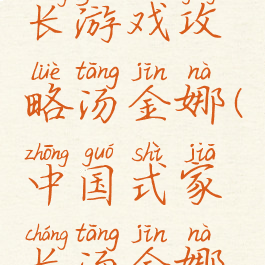 长游戏攻
lüè tāng jīn nà
略汤金娜(
zhōng guó shì jiā
中国式家
cháng tāng jīn nà
长汤金娜